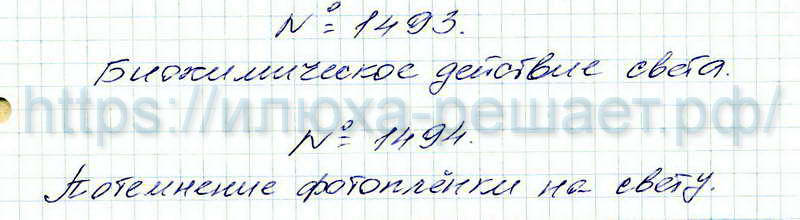 № 1493.
Биохимическое действие света.
https://илюха-решает.рф/
№ 1494.
Потемнение фотоплёнки на свету.